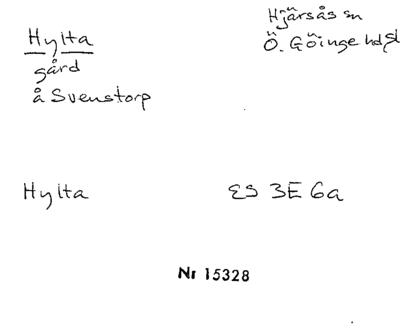 Hylta
gård
å Svenstorp
Hjärsås sn
Ö. Göinge hd
Hylta
ES 3E 6a
Nr 15328